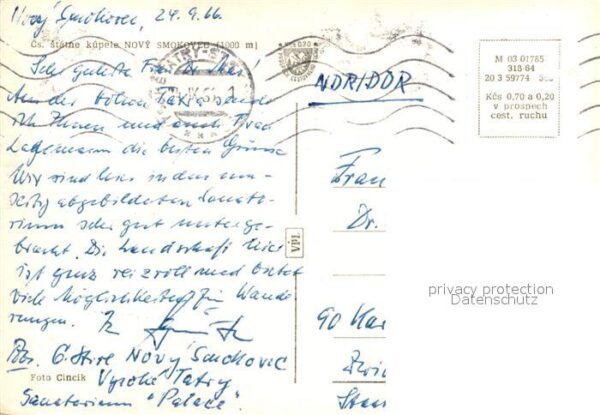 Nový Smokovec, 24.9.66
Čs. štátne kúpele NOVÝ SMOKOVEC (1000 m)
Sehr geliebte Frau Dr.
Aus der hohen Tatra sende
ich Ihnen und auch Frau
Lagemann die besten Grüsse
Wir sind hier in dem
abgebildeten Sanato-
rium sehr gut unterge-
bracht. Die Landschaft hier
ist ganz reizvoll und bietet
viele Möglichkeiten für Wande
rungen. Ihr
Abs. G. Nový Smokovec
Foto Cincík
Vysoké Tatry
Sanatorium "Palace"
VPL
NDR/DDR
M 03 01785
313-64
20 3 59774
Kčs 0,70 a 0,20
v prospech
cest. ruchu
Frau
Dr.
privacy protection
Datenschutz
90 Kar